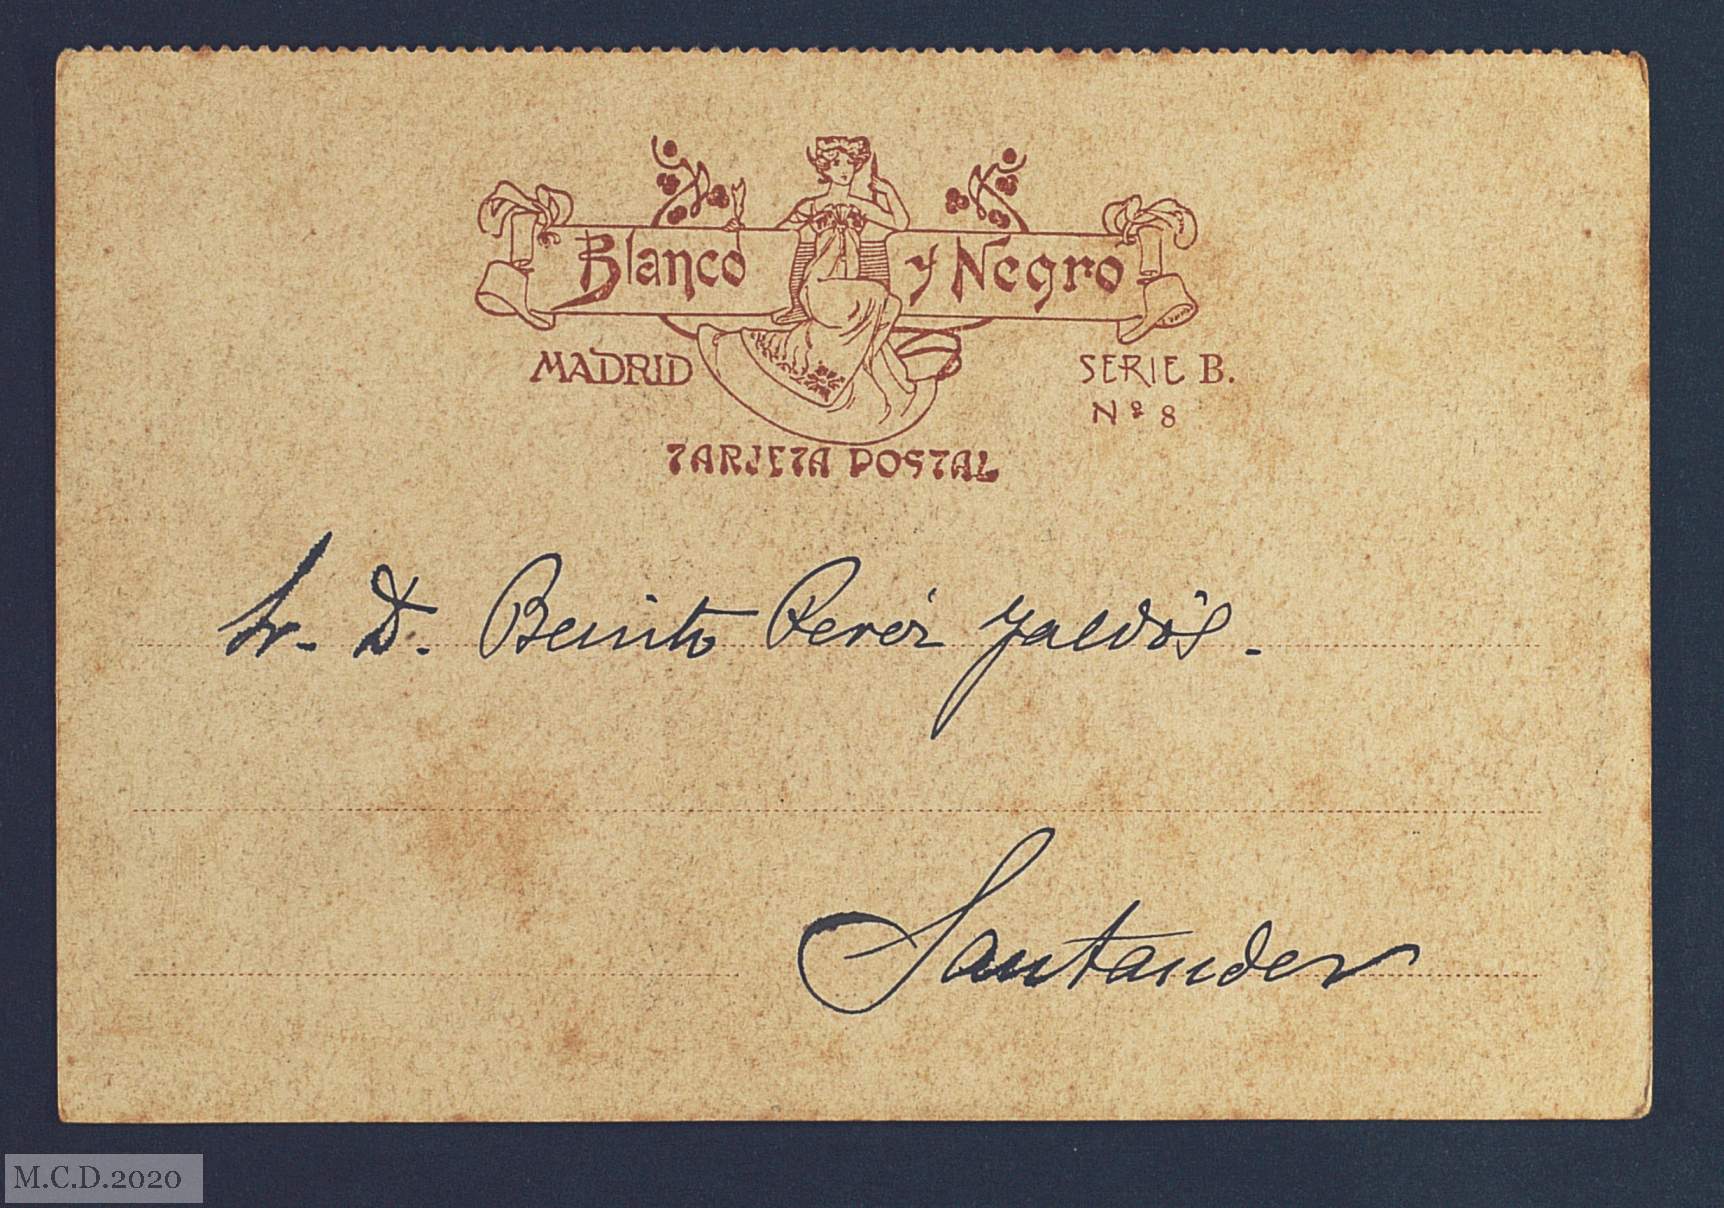 Blanco y Negro
MADRID
SERIE B.
Nº 8
TARJETA POSTAL
Sr. D. Benito Peréz Galdós.
Santander
M.C.D.2020